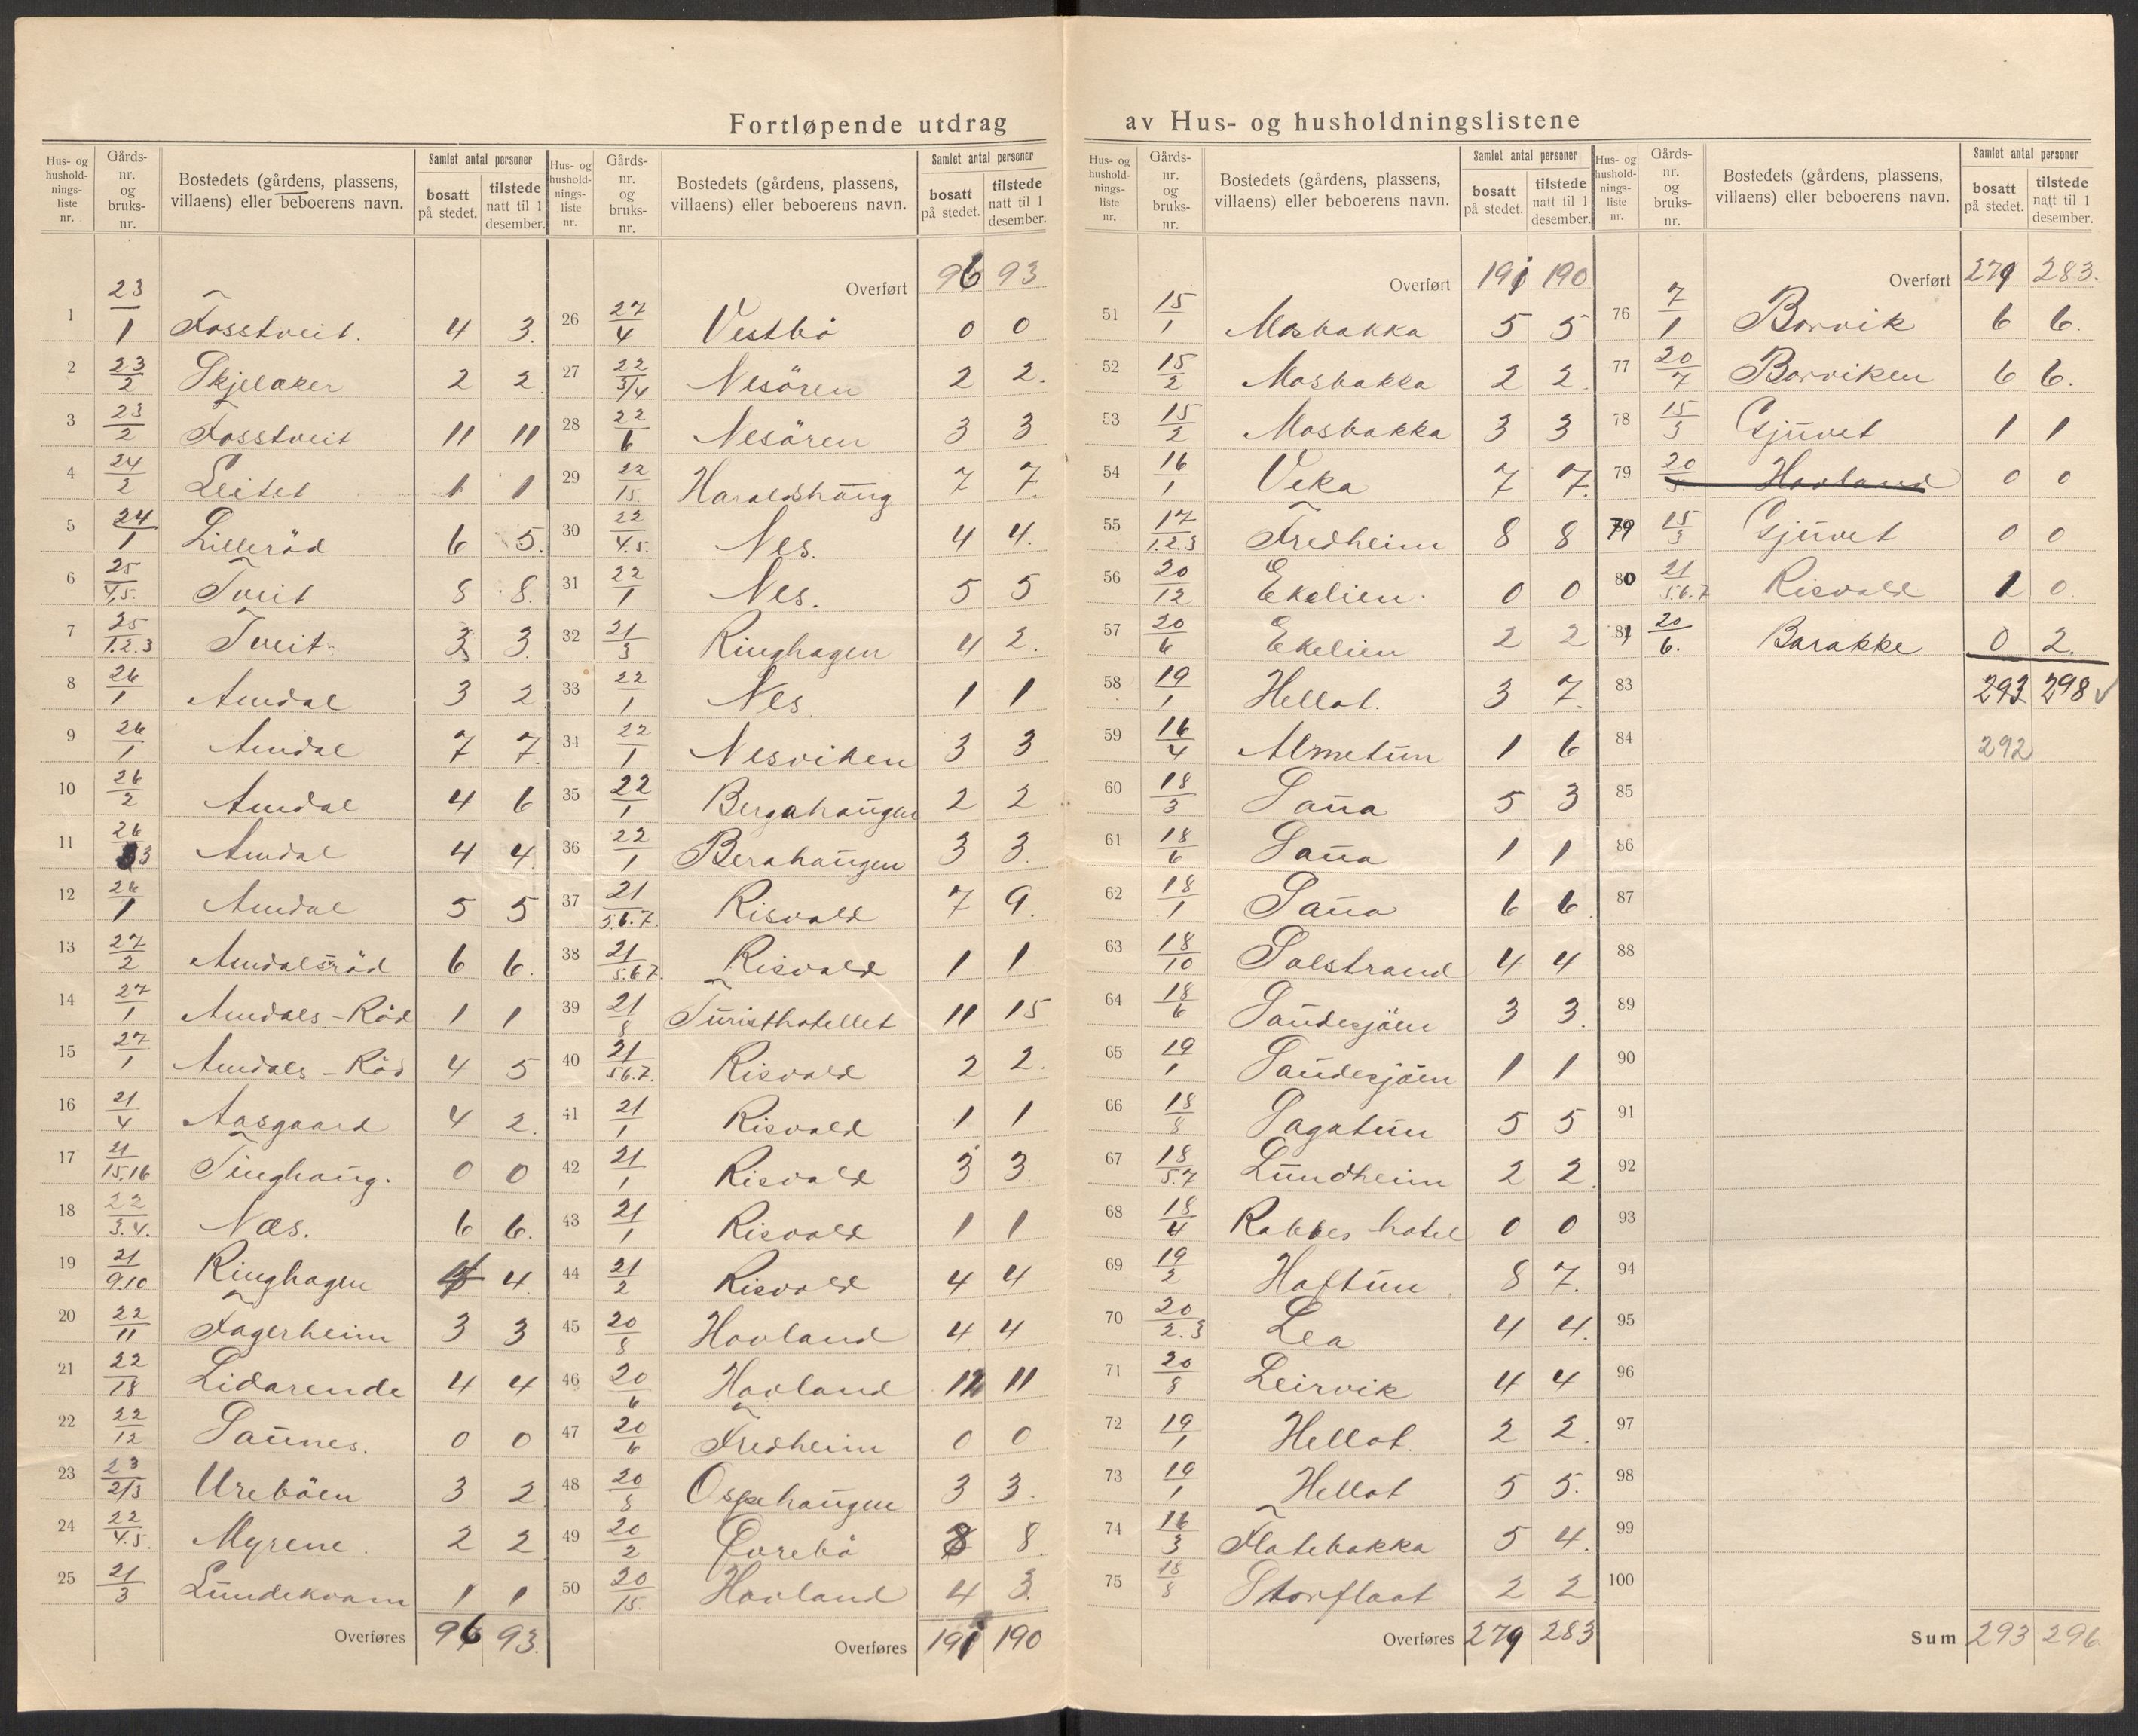 Fortløpende utdrag av Hus- og husholdningslistene
Hus- og husholdningsliste nr. | Gårdsnr. og bruksnr. | Bostedets (gårdens, plassens, villaens) eller beboerens navn. | Samlet antal personer bosatt på stedet. | tilstede natt til 1 desember.
1 23/1 Fosstveit. 4 3.
2 23/2 Skjelaker 2 2
3 23/2 Fosstveit 11 11
4 24/2 Leitet 1 1
5 24/1 Lilleröd 6 5.
6 25/4,5. Tveit 8 8.
7 25/1.2.3 Tveit 3 3.
8 26/1 Amdal 3 2
9 26/1 Amdal 7 7.
10 26/2 Amdal 4 6
11 26/3 Amdal 4 4
12 26/1 Amdal 5 5
13 27/2 Amdalsröd 6 6.
14 27/1 Amdals-Röd 1 1
15 27/1 Amdals-Röd 4 5
16 21/4 Aasgaard 4 2.
17 21/15.16 Tinghaug. 0 0
18 22/3.4. Næs. 6 6.
19 21/9.10 Ringhagen 4
20 22/11 Fagerheim 3 3
21 22/18 Lidarende 4 4
22 22/12 Saunes. 0 0
23 23/2/3 Ureböen 3 2
24 22/4.5. Myrene. 2 2
25 21/3 Lundekvam 1 1
Overføres 96 93.
Hus- og husholdningsliste nr. | Gårdsnr. og bruksnr. | Bostedets (gårdens, plassens, villaens) eller beboerens navn. | Samlet antal personer bosatt på stedet. | tilstede natt til 1 desember.
Overført 96 93
26 27/4 Vestbö 0 0
27 22/3/4 Nesören 2 2.
28 22/6 Nesören 3 3
29 22/15. Haraldshaug 7 7.
30 22/4.5. Nes. 4 4.
31 22/1 Nes. 5 5
32 21/3 Ringhagen 4 2.
33 22/1 Nes 1 1
34 22/1 Nesviken 3 3
35 22/1 Bergahaugen 2 2
36 22/1 Berahaugen 3 3.
37 21/5.6.7. Risvold 7 9.
38 21/5.6.7. Risvold 1 1
39 21/8 Turisthotellet 11 15
40 21/5.6.7. Risvold 2 2.
41 21/1 Risvold 1 1
42 21/1 Risvold 3 3.
43 21/1 Risvold 1 1
44 21/2 Risvold 4 4
45 20/8 Hovland 4 4
46 20/6 Hovland 12 11
47 20/6 Fredheim 0 0
48 20/8 Ospehaugen 3 3.
49 20/2 Qvrebö 8 8.
50 20/15. Hovland 4 3.
Overføres 191 190
Hus- og husholdningsliste nr. | Gårdsnr. og bruksnr. | Bostedets (gårdens, plassens, villaens) eller beboerens navn. | Samlet antal personer bosatt på stedet. | tilstede natt til 1 desember.
Overført 191 190
51 15/1 Mosbakka 5 5
52 15/2 Mosbakka 2 2.
53 15/2 Mosbakka 3 3
54 16/1 Veka 7 7.
55 17/1.2.3 Fredheim 8 8
56 20/12 Ekelien. 0 0
57 20/6 Ekelien 2 2
58 19/1 Hellot. 3 7.
59 16/4 Almetun 1 6
60 18/3 Saua 5 3
61 18/6 Saua 1 1
62 18/1 Saua 6 6.
63 18/10 Solstrand 4 4
64 18/6 Saudesjöen 3 3.
65 19/1 Saudesjöen 1 1
66 18/8 Sagatun 5 5
67 18/5.7 Lundheim 2 2.
68 18/4 Rabbes hotel 0 0
69 19/2 Haftun. 8 7.
70 20/2.3 Lea 4 4.
71 20/8 Leirvik 4 4
72 19/1 Hellot. 2 2.
73 19/1 Hellot 5 5.
74 16/3 Flatebakka 5 4.
75 18/8 Storflaat 2 2
Overføres 279 283
Hus- og husholdningsliste nr. | Gårdsnr. og bruksnr. | Bostedets (gårdens, plassens, villaens) eller beboerens navn. | Samlet antal personer bosatt på stedet. | tilstede natt til 1 desember.
Overført 279 283.
76 7/1 Borvik 6 6.
77 20/7 Borviken 6 6.
78 15/3 Gjuvet 1 1
79 20/5. Hovland 0 0
79 15/3 Gjuvet 0 0
80 21/5.6.7 Risvold 1 0.
81 20/6. Barakke 0 2.
83 293 298 ✓
84 292
85
86
87
88
89
90
91
92
93
94
95
96
97
98
99
100
Sum 293 296